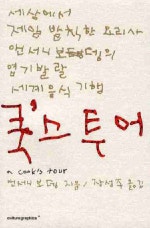 세상에서
제일 발칙한 요리사
앤서니 보뎅의
엽기발랄
세계음식 기행
쿡스 투어
a cook's tour
앤서니 보뎅 지음 / 장성주 옮김
culturegraphics